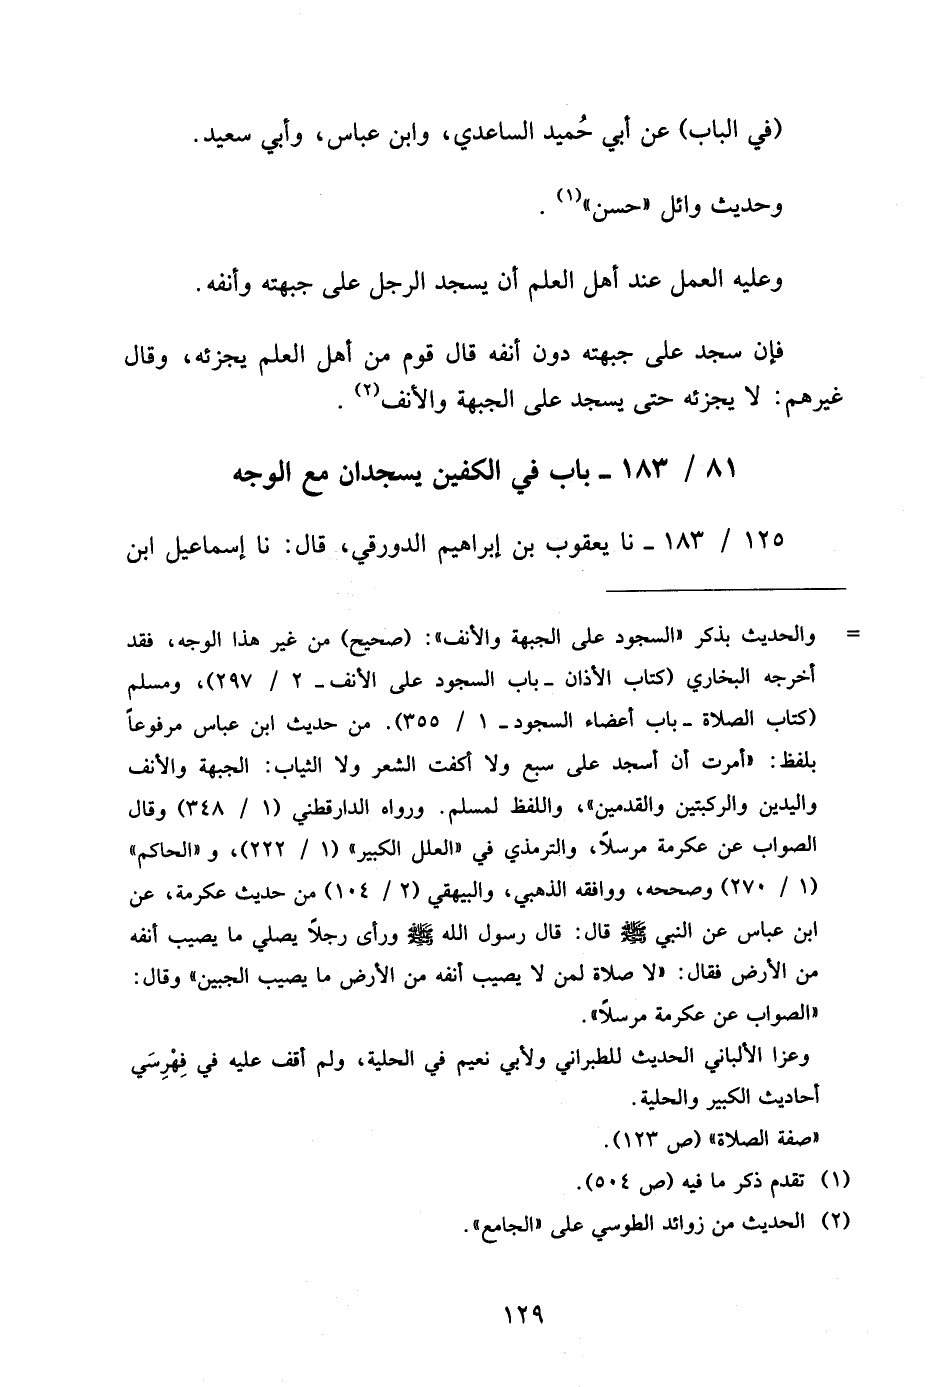 (في الباب) عن أبي حُميد الساعدي، وابن عباس، وأبي سعيد.
وحديث وائل «حسن»(١) .
وعليه العمل عند أهل العلم أن يسجد الرجل على جبهته وأنفه.
فإن سجد على جبهته دون أنفه قال قوم من أهل العلم يجزئه، وقال
غيرهم: لا يجزئه حتى يسجد على الجبهة والأنف(٢) .
٨١ / ١٨٣ ـ باب في الكفين يسجدان مع الوجه
١٢٥ / ١٨٣ ـ نا يعقوب بن إبراهيم الدورقي، قال: نا إسماعيل ابن
= والحديث بذكر «السجود على الجبهة والأنف»: (صحيح) من غير هذا الوجه، فقد
أخرجه البخاري (كتاب الأذان ـ باب السجود على الأنف ـ ٢ / ٢٩٧)، ومسلم
(كتاب الصلاة ـ باب أعضاء السجود ـ ١ / ٣٥٥). من حديث ابن عباس مرفوعاً
بلفظ: «أمرت أن أسجد على سبع ولا أكفت الشعر ولا الثياب: الجبهة والأنف
واليدين والركبتين والقدمين»، واللفظ لمسلم. ورواه الدارقطني (١ / ٣٤٨) وقال
الصواب عن عكرمة مرسلاً، والترمذي في «العلل الكبير» (١ / ٢٢٢)، و «الحاكم»
(١ / ٢٧٠) وصححه، ووافقه الذهبي، والبيهقي (٢ / ١٠٤) من حديث عكرمة، عن
ابن عباس عن النبي ﷺ قال: قال رسول الله ﷺ ورأى رجلاً يصلي ما يصيب أنفه
من الأرض فقال: «لا صلاة لمن لا يصيب أنفه من الأرض ما يصيب الجبين» وقال:
«الصواب عن عكرمة مرسلاً».
وعزا الألباني الحديث للطبراني ولأبي نعيم في الحلية، ولم أقف عليه في فِهْرِسَي
أحاديث الكبير والحلية.
«صفة الصلاة» (ص ١٢٣).
(١) تقدم ذكر ما فيه (ص ٥٠٤).
(٢) الحديث من زوائد الطوسي على «الجامع».
١٢٩